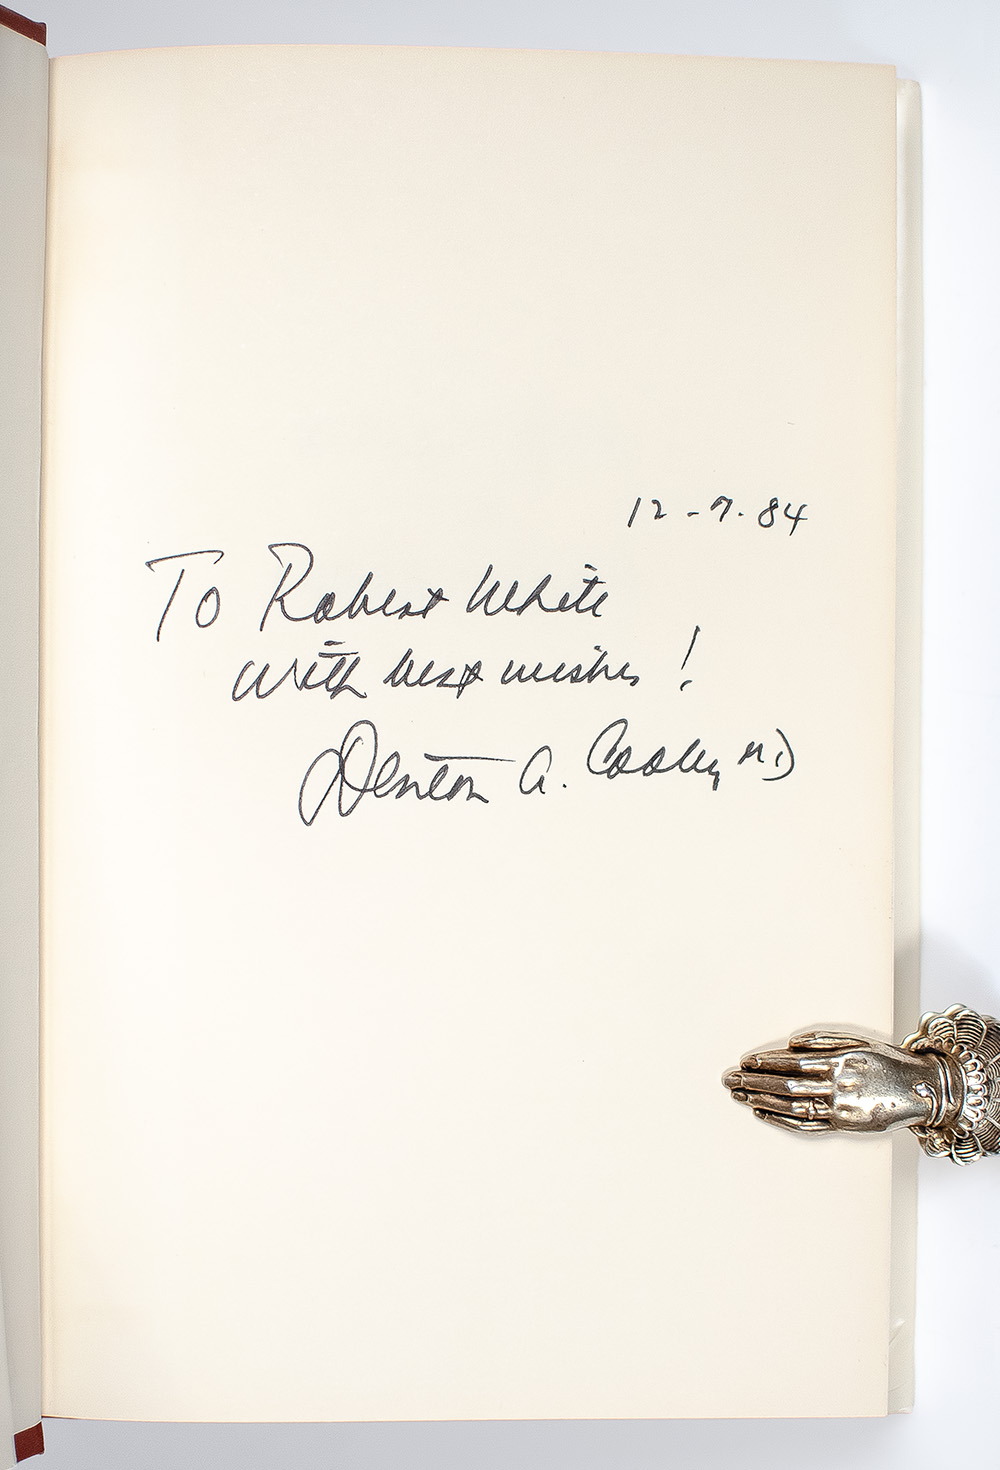 12-7-84
To Robert White
With best wishes!
Denton A. Cooley MD